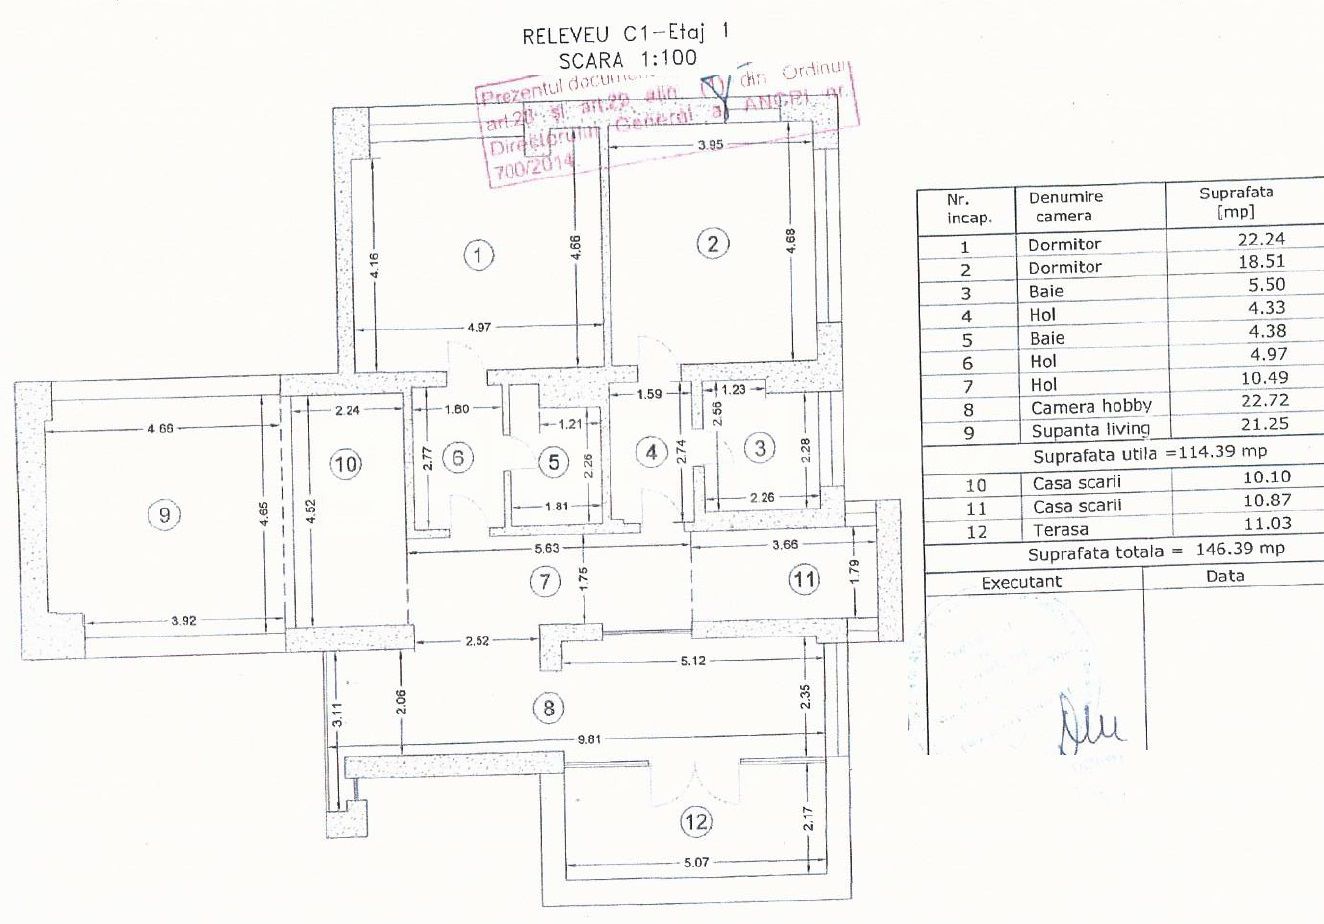 RELEVEU C1-Etaj 1
SCARA 1:100
Prezentul document
din Ordinul
art.28 şi art.29 alin (1)
Directorului General al ANCPI nr.
700/2014
3.95
4.16
4.66
1
2
4.68
4.97
2.24
1.60
1.59
1.23
4.66
1.21
2.56
10
6
5
4
3
2.77
2.26
2.74
2.28
9
4.65
4.52
1.81
2.26
5.63
3.66
7
1.75
11
1.79
3.92
2.52
5.12
3.11
2.06
8
2.35
9.81
12
2.17
5.07
Nr. incap. Denumire camera Suprafata [mp]
1 Dormitor 22.24
2 Dormitor 18.51
3 Baie 5.50
4 Hol 4.33
5 Baie 4.38
6 Hol 4.97
7 Hol 10.49
8 Camera hobby 22.72
9 Supanta living 21.25
Suprafata utila =114.39 mp
10 Casa scarii 10.10
11 Casa scarii 10.87
12 Terasa 11.03
Suprafata totala = 146.39 mp
Executant Data